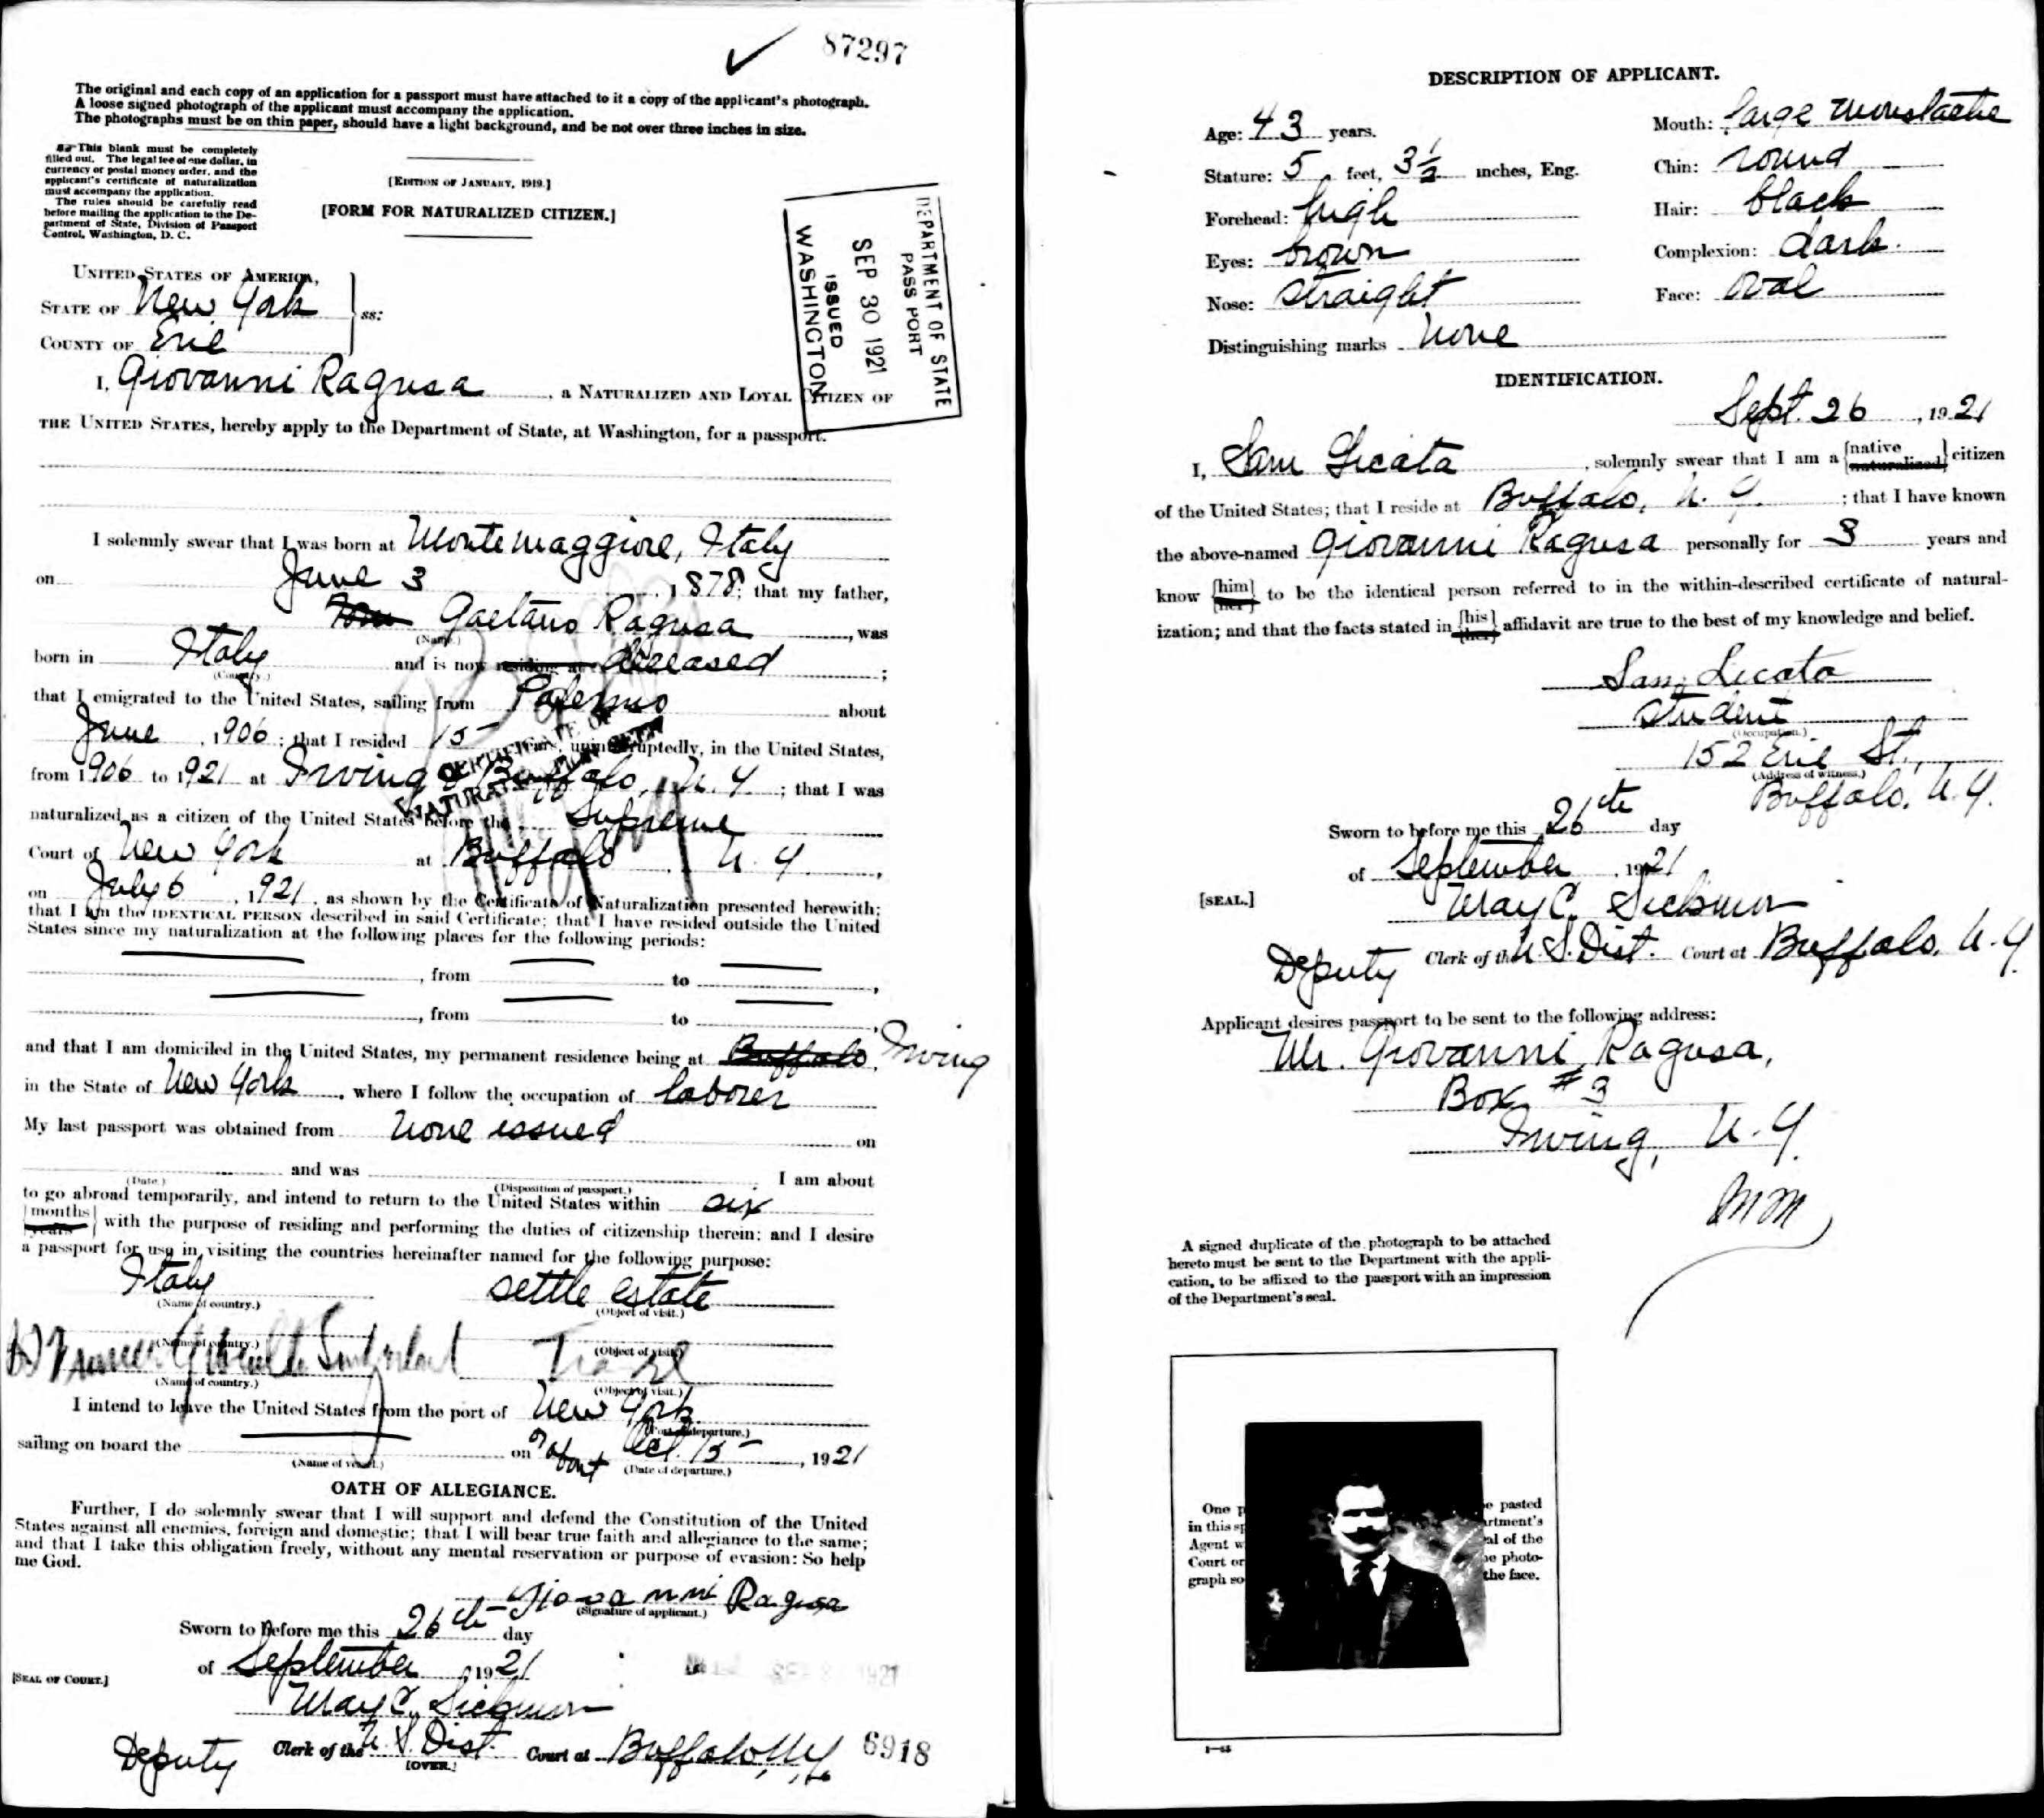 87297
The original and each copy of an application for a passport must have attached to it a copy of the applicant's photograph.
A loose signed photograph of the applicant must accompany the application.
The photographs must be on thin paper, should have a light background, and be not over three inches in size.
This blank must be completely
filled out. The legal fee of one dollar, in
currency or postal money order, and the
applicant's certificate of naturalization
must accompany the application.
The rules should be carefully read
before mailing the application to the De-
partment of State, Division of Passport
Control, Washington, D. C.
[EDITION OF JANUARY, 1919.]
[FORM FOR NATURALIZED CITIZEN.]
DEPARTMENT OF STATE
PASS PORT
SEP 30 1921
ISSUED
WASHINGTON
UNITED STATES OF AMERICA,
STATE OF New York
ss:
COUNTY OF Erie
I, Giovanni Ragusa, a NATURALIZED AND LOYAL CITIZEN OF
THE UNITED STATES, hereby apply to the Department of State, at Washington, for a passport.
I solemnly swear that I was born at Montemaggiore, Italy
on June 3, 1878; that my father,
Tom Gaetano Ragusa, was
(Name.)
born in Italy and is now residing at deceased;
(Country.)
that I emigrated to the United States, sailing from Palermo about
June, 1906; that I resided 15 years, uninterruptedly, in the United States,
CERTIFICATE OF
NATURALIZATION SEEN
from 1906 to 1921 at Irving & Buffalo, N. Y.; that I was
naturalized as a citizen of the United States before the Supreme
Court of New York at Buffalo, N. Y.,
on July 6, 1921, as shown by the Certificate of Naturalization presented herewith;
that I am the IDENTICAL PERSON described in said Certificate; that I have resided outside the United
States since my naturalization at the following places for the following periods:
, from to ,
, from to ,
and that I am domiciled in the United States, my permanent residence being at Buffalo, Irving
in the State of New York, where I follow the occupation of laborer
My last passport was obtained from None issued on
and was I am about
(Date.) (Disposition of passport.)
to go abroad temporarily, and intend to return to the United States within six
{months
years} with the purpose of residing and performing the duties of citizenship therein; and I desire
a passport for use in visiting the countries hereinafter named for the following purpose:
Italy settle estate
(Name of country.) (Object of visit.)
(Name of country.) (Object of visit.)
Travel
(Name of country.) (Object of visit.)
I intend to leave the United States from the port of New York
(Port of departure.)
sailing on board the on or about Oct. 15, 1921
(Name of vessel.) (Date of departure.)
OATH OF ALLEGIANCE.
Further, I do solemnly swear that I will support and defend the Constitution of the United
States against all enemies, foreign and domestic; that I will bear true faith and allegiance to the same;
and that I take this obligation freely, without any mental reservation or purpose of evasion: So help
me God.
Giovanni Ragusa
(Signature of applicant.)
Sworn to before me this 26th day
of September, 1921
[SEAL OF COURT.]
May C. Sickmon
Deputy Clerk of the U. S. Dist. Court at Buffalo, N.Y.
[OVER.]
6918
DESCRIPTION OF APPLICANT.
Age: 43 years.
Mouth: large moustache
Stature: 5 feet, 3½ inches, Eng.
Chin: round
Forehead: high
Hair: black
Eyes: brown
Complexion: dark.
Nose: straight
Face: oval
Distinguishing marks None
IDENTIFICATION.
Sept. 26, 1921
I, Sam Licata, solemnly swear that I am a {native naturalized} citizen
of the United States; that I reside at Buffalo, N. Y.; that I have known
the above-named Giovanni Ragusa personally for 8 years and
know {him her} to be the identical person referred to in the within-described certificate of natural-
ization; and that the facts stated in {his her} affidavit are true to the best of my knowledge and belief.
Sam Licata
Student
(Occupation.)
152 Erie St.,
(Address of witness.)
Buffalo, N. Y.
Sworn to before me this 26th day
of September, 1921
[SEAL.]
May C. Sickmon
Deputy Clerk of the U. S. Dist. Court at Buffalo, N. Y.
Applicant desires passport to be sent to the following address:
Mr. Giovanni Ragusa,
Box #3
Irving, N. Y.
MM
A signed duplicate of the photograph to be attached
hereto must be sent to the Department with the appli-
cation, to be affixed to the passport with an impression
of the Department's seal.
One p e pasted
in this sp artment's
Agent w al of the
Court or e photo-
graph so the face.